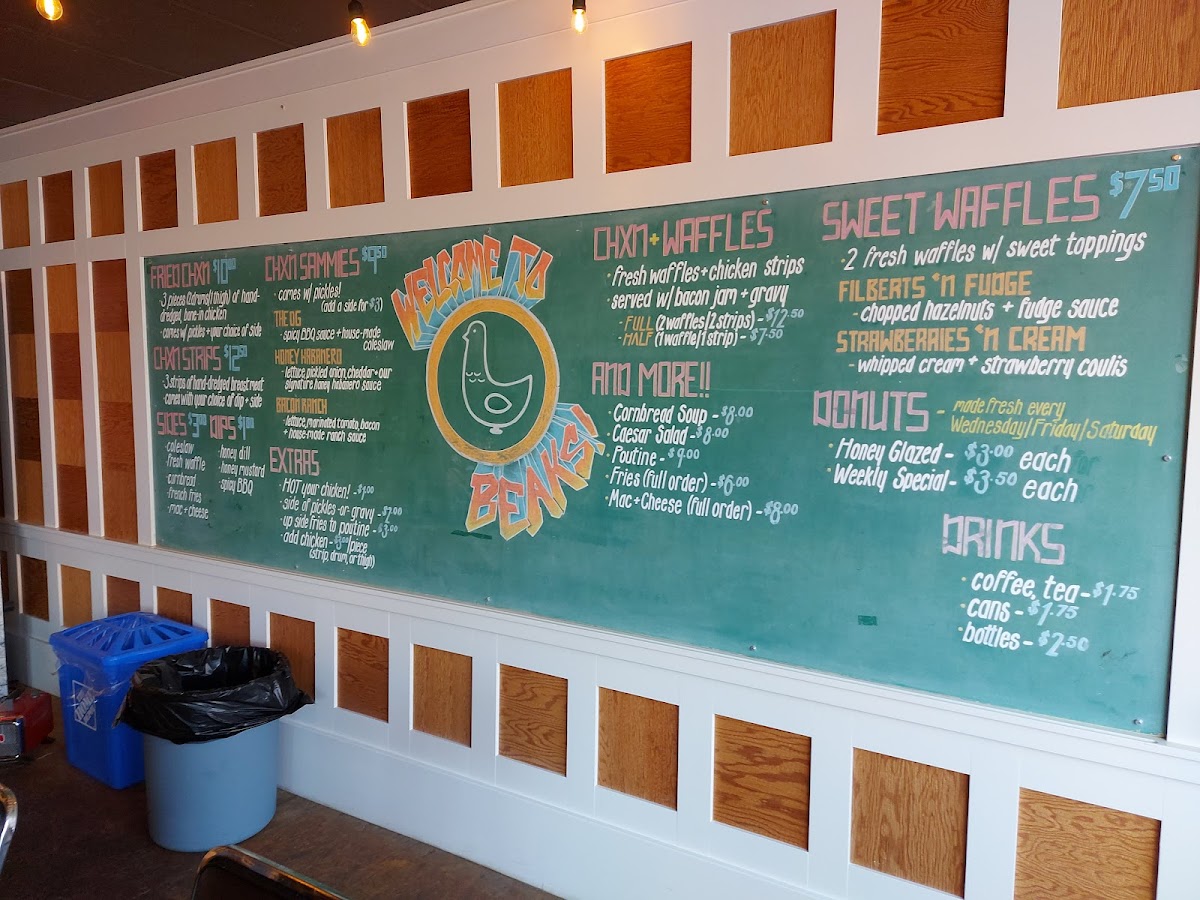 FRIED CHXN $10.00
· 3 pieces (2 drums/1 thigh) of hand-
dredged, bone-in chicken
· comes w/ pickles + your choice of side
CHXN STRIPS $12.50
· 3 strips of hand-dredged breast meat
· comes with your choice of dip + side
SIDES $3.00
· coleslaw
· fresh waffle
· cornbread
· french fries
· mac + cheese
DIPS $1.00
· honey dill
· honey mustard
· spicy BBQ
CHXN SAMMIES $9.50
· comes w/ pickles!
(add a side for $3)
THE OG
· spicy BBQ sauce + house-made
coleslaw
HONEY HABANERO
· lettuce, pickled onion, cheddar + our
signature honey habanero sauce
BACON RANCH
· lettuce, marinated tomato, bacon
+ house-made ranch sauce
EXTRAS
· HOT your chicken! - $1.00
· side of pickles -or- gravy - $2.00
· up side fries to poutine - $3.00
· add chicken - $3.00/piece
(strip, drum, or thigh)
WELCOME TO
BEAKS!
CHXN + WAFFLES
· fresh waffles + chicken strips
· served w/ bacon jam + gravy
- FULL (2 waffles/2 strips) - $12.50
- HALF (1 waffle/1 strip) - $7.50
AND MORE!!
· Cornbread Soup - $8.00
· Caesar Salad - $8.00
· Poutine - $9.00
· Fries (full order) - $6.00
· Mac + Cheese (full order) - $8.00
SWEET WAFFLES $7.50
· 2 fresh waffles w/ sweet toppings
FILBERTS 'N FUDGE
- chopped hazelnuts + fudge sauce
STRAWBERRIES 'N CREAM
- whipped cream + strawberry coulis
DONUTS - made fresh every
Wednesday/Friday/Saturday
· Honey Glazed - $3.00 each
· Weekly Special - $3.50 each
DRINKS
· coffee, tea - $1.75
· cans - $1.75
· bottles - $2.50